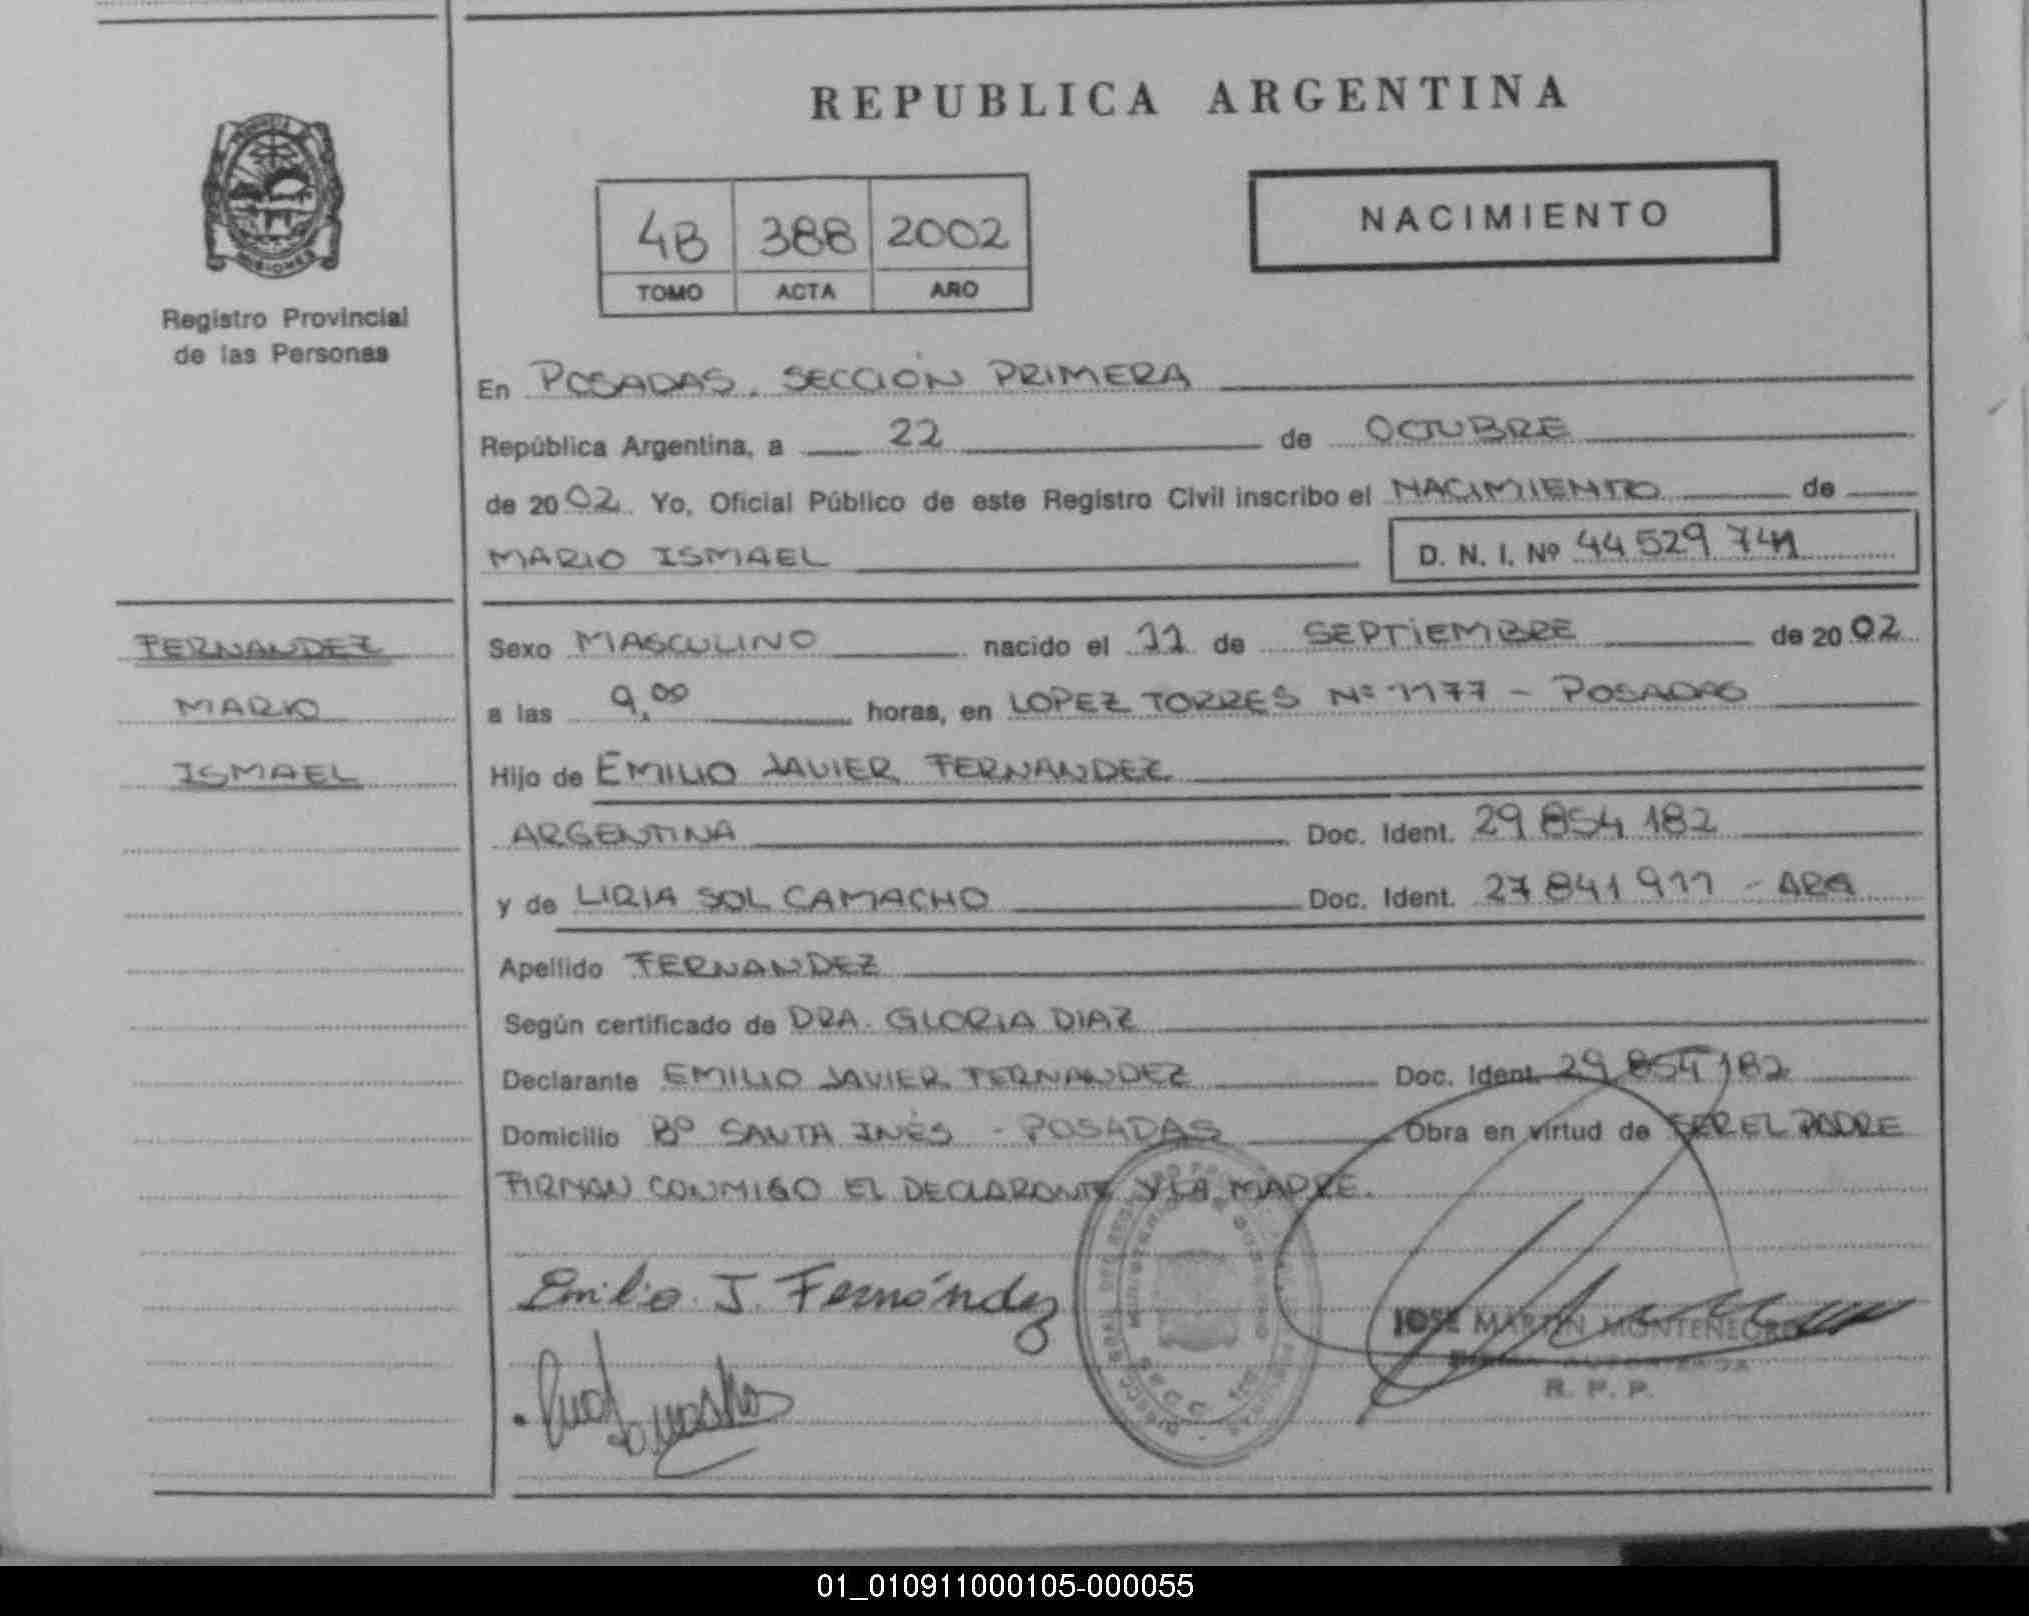 REPUBLICA ARGENTINA
MISIONES
Registro Provincial
de las Personas
4B 388 2002
TOMO ACTA AÑO
NACIMIENTO
En POSADAS. SECCIÓN PRIMERA
República Argentina, a 22 de OCTUBRE
de 2002. Yo, Oficial Público de este Registro Civil inscribo el NACIMIENTO de
MARIO ISMAEL D. N. I. Nº 44 529 741
FERNANDEZ
MARIO
ISMAEL
Sexo MASCULINO nacido el de SEPTIEMBRE de 2002
a las 9,00 horas, en LOPEZ TORRES Nº 1177 - POSADAS
Hijo de EMILIO JAVIER FERNANDEZ
ARGENTINA Doc. Ident. 29 854 182
y de LIRIA SOL CAMACHO Doc. Ident. 27 841 911 - ARG
Apellido FERNANDEZ
Según certificado de DRA. GLORIA DIAZ
Declarante EMILIO JAVIER FERNANDEZ Doc. Ident. 29 854 182
Domicilio Bº SANTA INÉS - POSADAS Obra en virtud de SER EL PADRE
FIRMAN CONMIGO EL DECLARANTE Y LA MADRE.
Emilio J. Fernández
JOSE MARTIN MONTENEGRO
FIRMA AUTORIZADA
R. P. P.
01_010911000105-000055